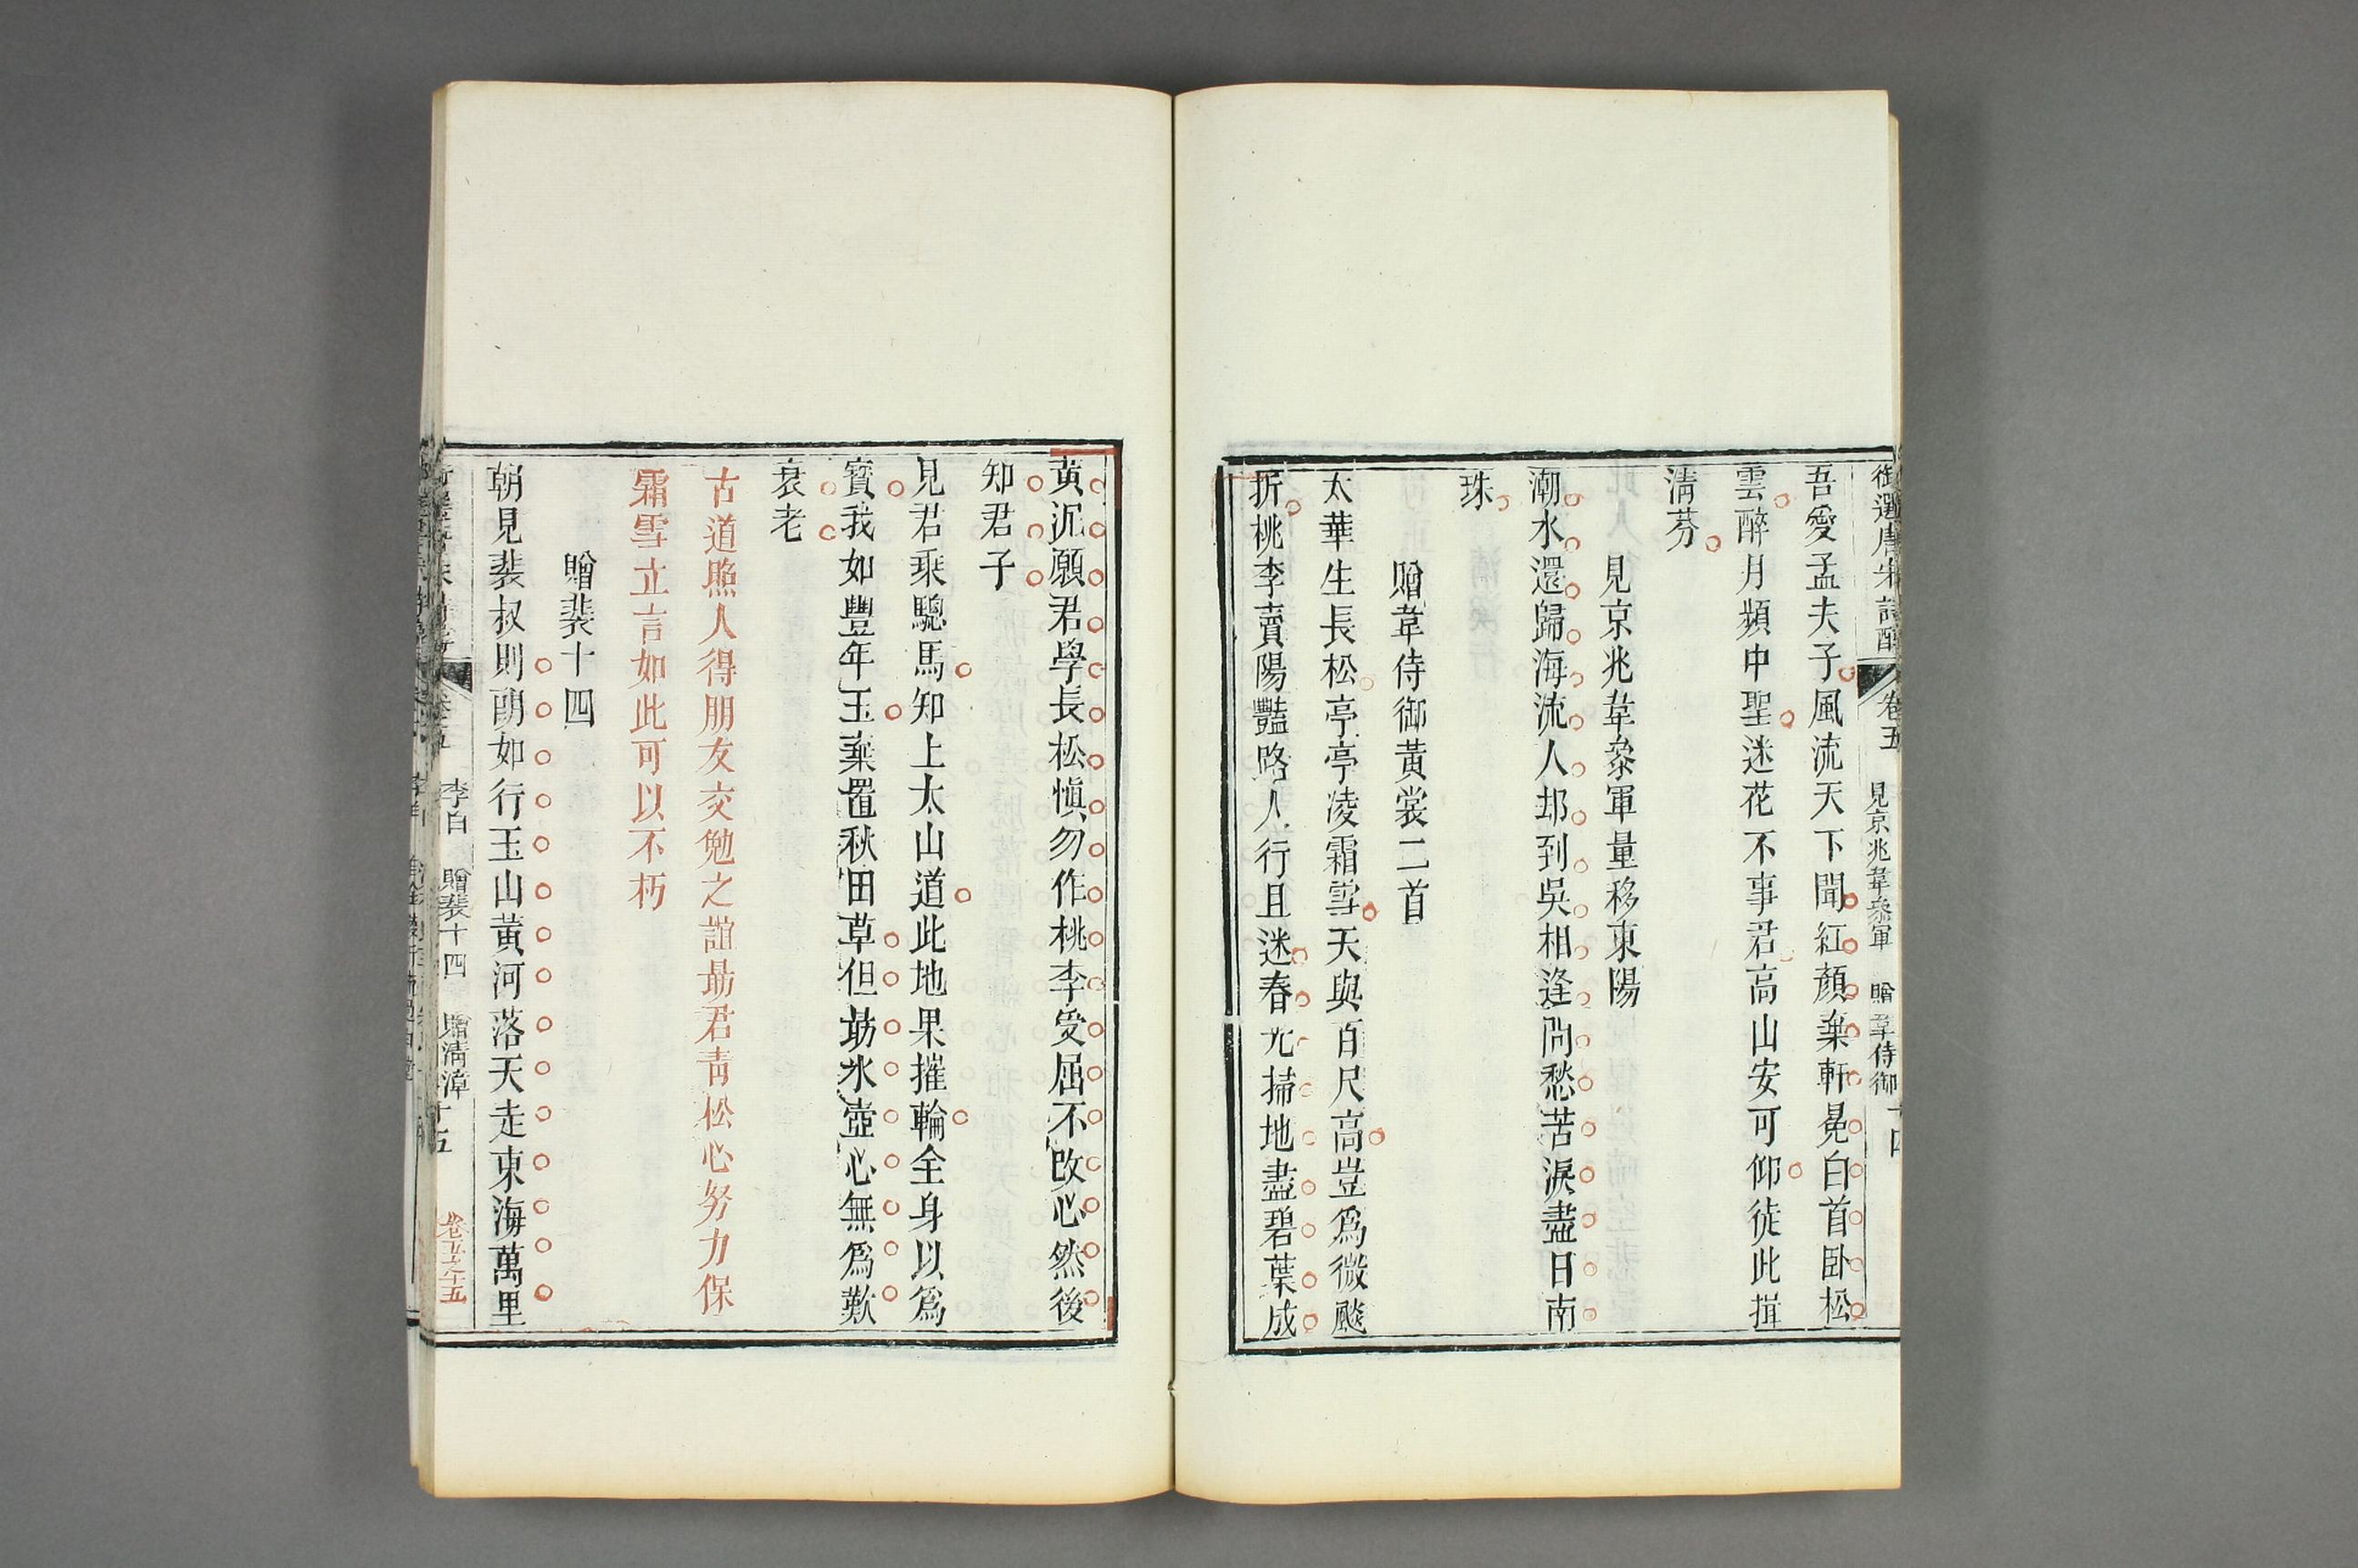 御選唐宋詩醇 卷五 見京兆韋叅軍 贈韋侍御 十四
吾愛孟夫子風流天下聞紅顏棄軒冕白首卧松
雲醉月頻中聖迷花不事君高山安可仰徒此揖
清芬
見京兆韋叅軍量移東陽
潮水還歸海流人却到吳相逢問愁苦淚盡日南
珠
贈韋侍御黃裳二首
太華生長松亭亭凌霜雪天與百尺高豈爲微飈
折桃李賣陽豔路人行且迷春光掃地盡碧葉成
黃泥願君學長松愼勿作桃李受屈不改心然後
知君子
見君乘驄馬知上太山道此地果摧輪全身以爲
寳我如豐年玉棄置秋田草但勗氷壺心無爲歎
衰老
古道照人得朋友交勉之誼勗君靑松心努力保
霜雪立言如此可以不朽
贈裴十四
朝見裴叔則朗如行玉山黃河落天走東海萬里
卷五 李白 贈裴十四 贈清漳 十五
卷五之十五